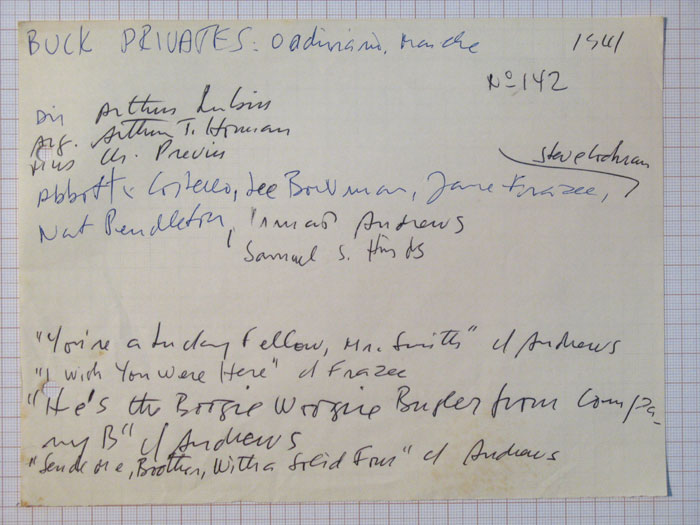 BUCK PRIVATES: Ordinário, Marche 1941
Nº 142
Dir Arthur Lubin
Arg. Arthur T. Horman
Mus Ch. Previn
Steve Cochran
Abbott & Costello, Lee Bowman, Jane Frazee,
Nat Pendleton, Irmãs Andrews
Samuel S. Hinds
"You're a Lucky Fellow, Mr. Smith" c/ Andrews
"I Wish You Were Here" c/ Frazee
"He's the Boogie Woogie Bugler from Compa-
ny B" c/ Andrews
"Send me, Brother, With a Solid Four" c/ Andrews